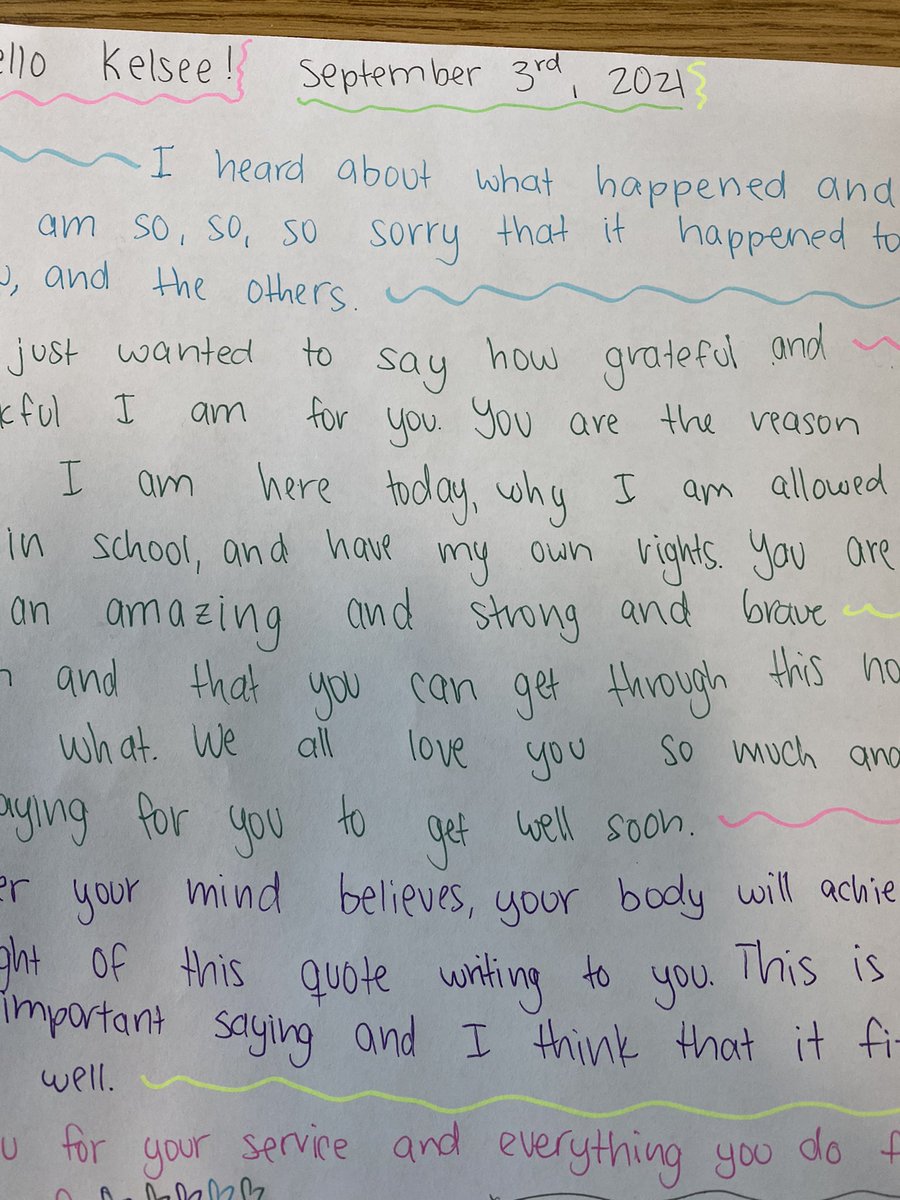 ello Kelsee! September 3rd, 2021
I heard about what happened and
am so, so, so sorry that it happened to
, and the others.
just wanted to say how grateful and
kful I am for you. You are the reason
I am here today, why I am allowed
in school, and have my own rights. You are
an amazing and strong and brave
and that you can get through this no
what. We all love you so much and
aying for you to get well soon.
er your mind believes, your body will achie
ght of this quote writing to you. This is
important saying and I think that it fi
well.
u for your service and everything you do f